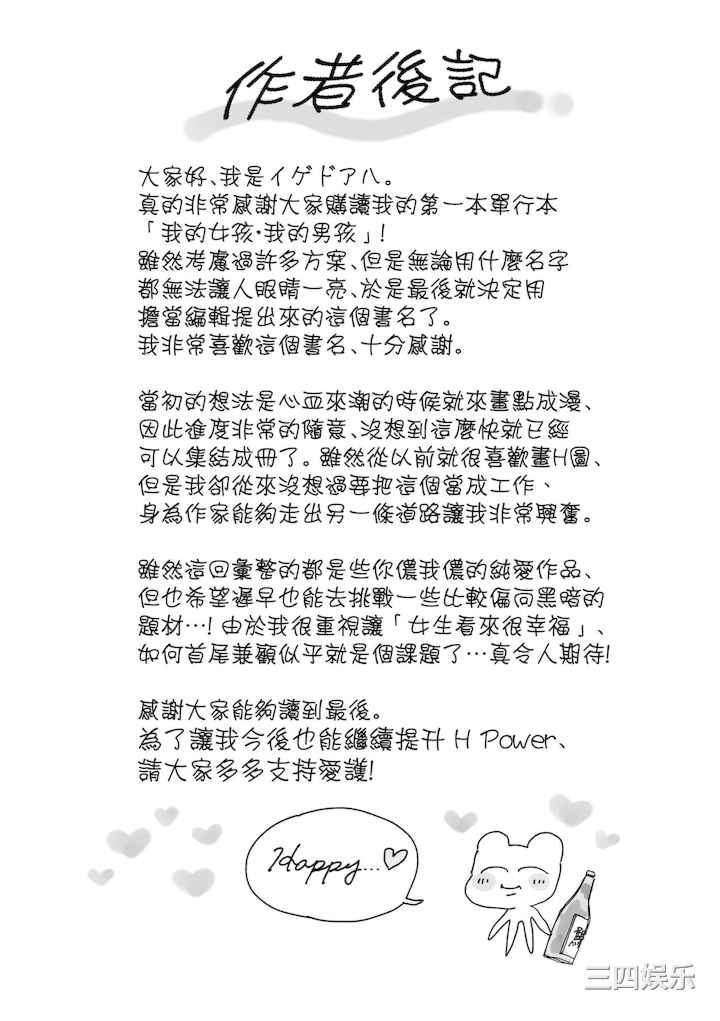 作者後記
大家好、我是イゲドアハ。
真的非常感謝大家購讀我的第一本單行本
「我的女孩·我的男孩」!
雖然考慮過許多方案、但是無論用什麼名字
都無法讓人眼睛一亮、於是最後就決定用
擔當編輯提出來的這個書名了。
我非常喜歡這個書名、十分感謝。
當初的想法是心血來潮的時候就來畫點成漫、
因此進度非常的隨意、沒想到這麼快就已經
可以集結成冊了。雖然從以前就很喜歡畫H圖、
但是我卻從來沒想過要把這個當成工作、
身為作家能夠走出另一條道路讓我非常興奮。
雖然這回彙整的都是些你儂我儂的純愛作品、
但也希望遲早也能去挑戰一些比較偏向黑暗的
題材…!由於我很重視讓「女生看來很幸福」、
如何首尾兼顧似乎就是個課題了…真令人期待!
感謝大家能夠讀到最後。
為了讓我今後也能繼續提升 H Power、
請大家多多支持愛護!
Happy...♡
三四娱乐